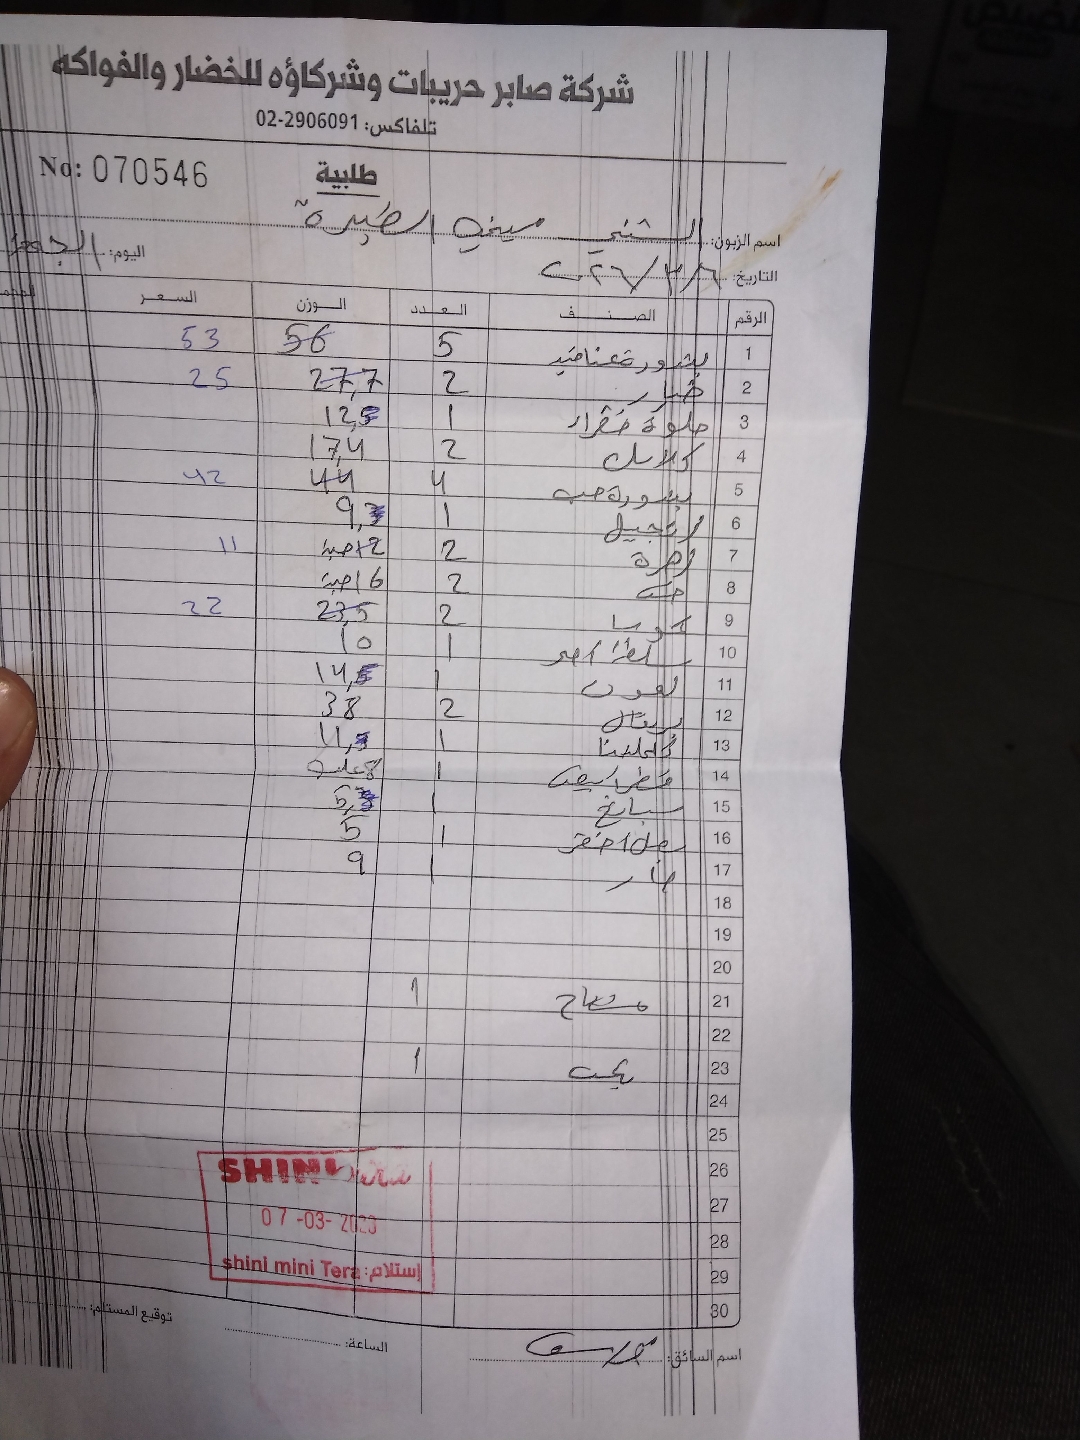 شركة صابر حريبات وشركاؤه للخضار والفواكه
تلفاكس: 02-2906091
طلبية
No: 070546
اسم الزبون: الشني ميني الطيرة
التاريخ: ٢٠٢٦/٣/٦ اليوم: الجمعة
الرقم الصنف العدد الوزن السعر
1 بندورة عناقيد 5 56 53
2 خيار 2 27,7 25
3 حلوة خضراء 1 12,5
4 2 17,4
5 بندورة حب 4 44 42
6 1 9,3
7 زهرة 2 12 حبة 11
8 خس 2 16 حبة
9 كوسا 2 23,5 22
10 1 10
11 ليمون 1 14,5
12 2 38
13 1
14 فطر 1 8 علب
15 سبانخ 1
16 بصل اخضر 1 5
17 1 9
18
19
20
21 1
22
23 1
24
25
26
27
28
29
30
SHINI
07-03-2023
إستلام: shini mini Tera
توقيع المستلم:
الساعة:
اسم السائق: